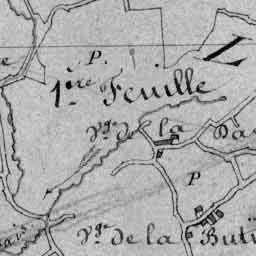 P.
L
1ère Feuille
Vge de la
P
Vge de la Buti